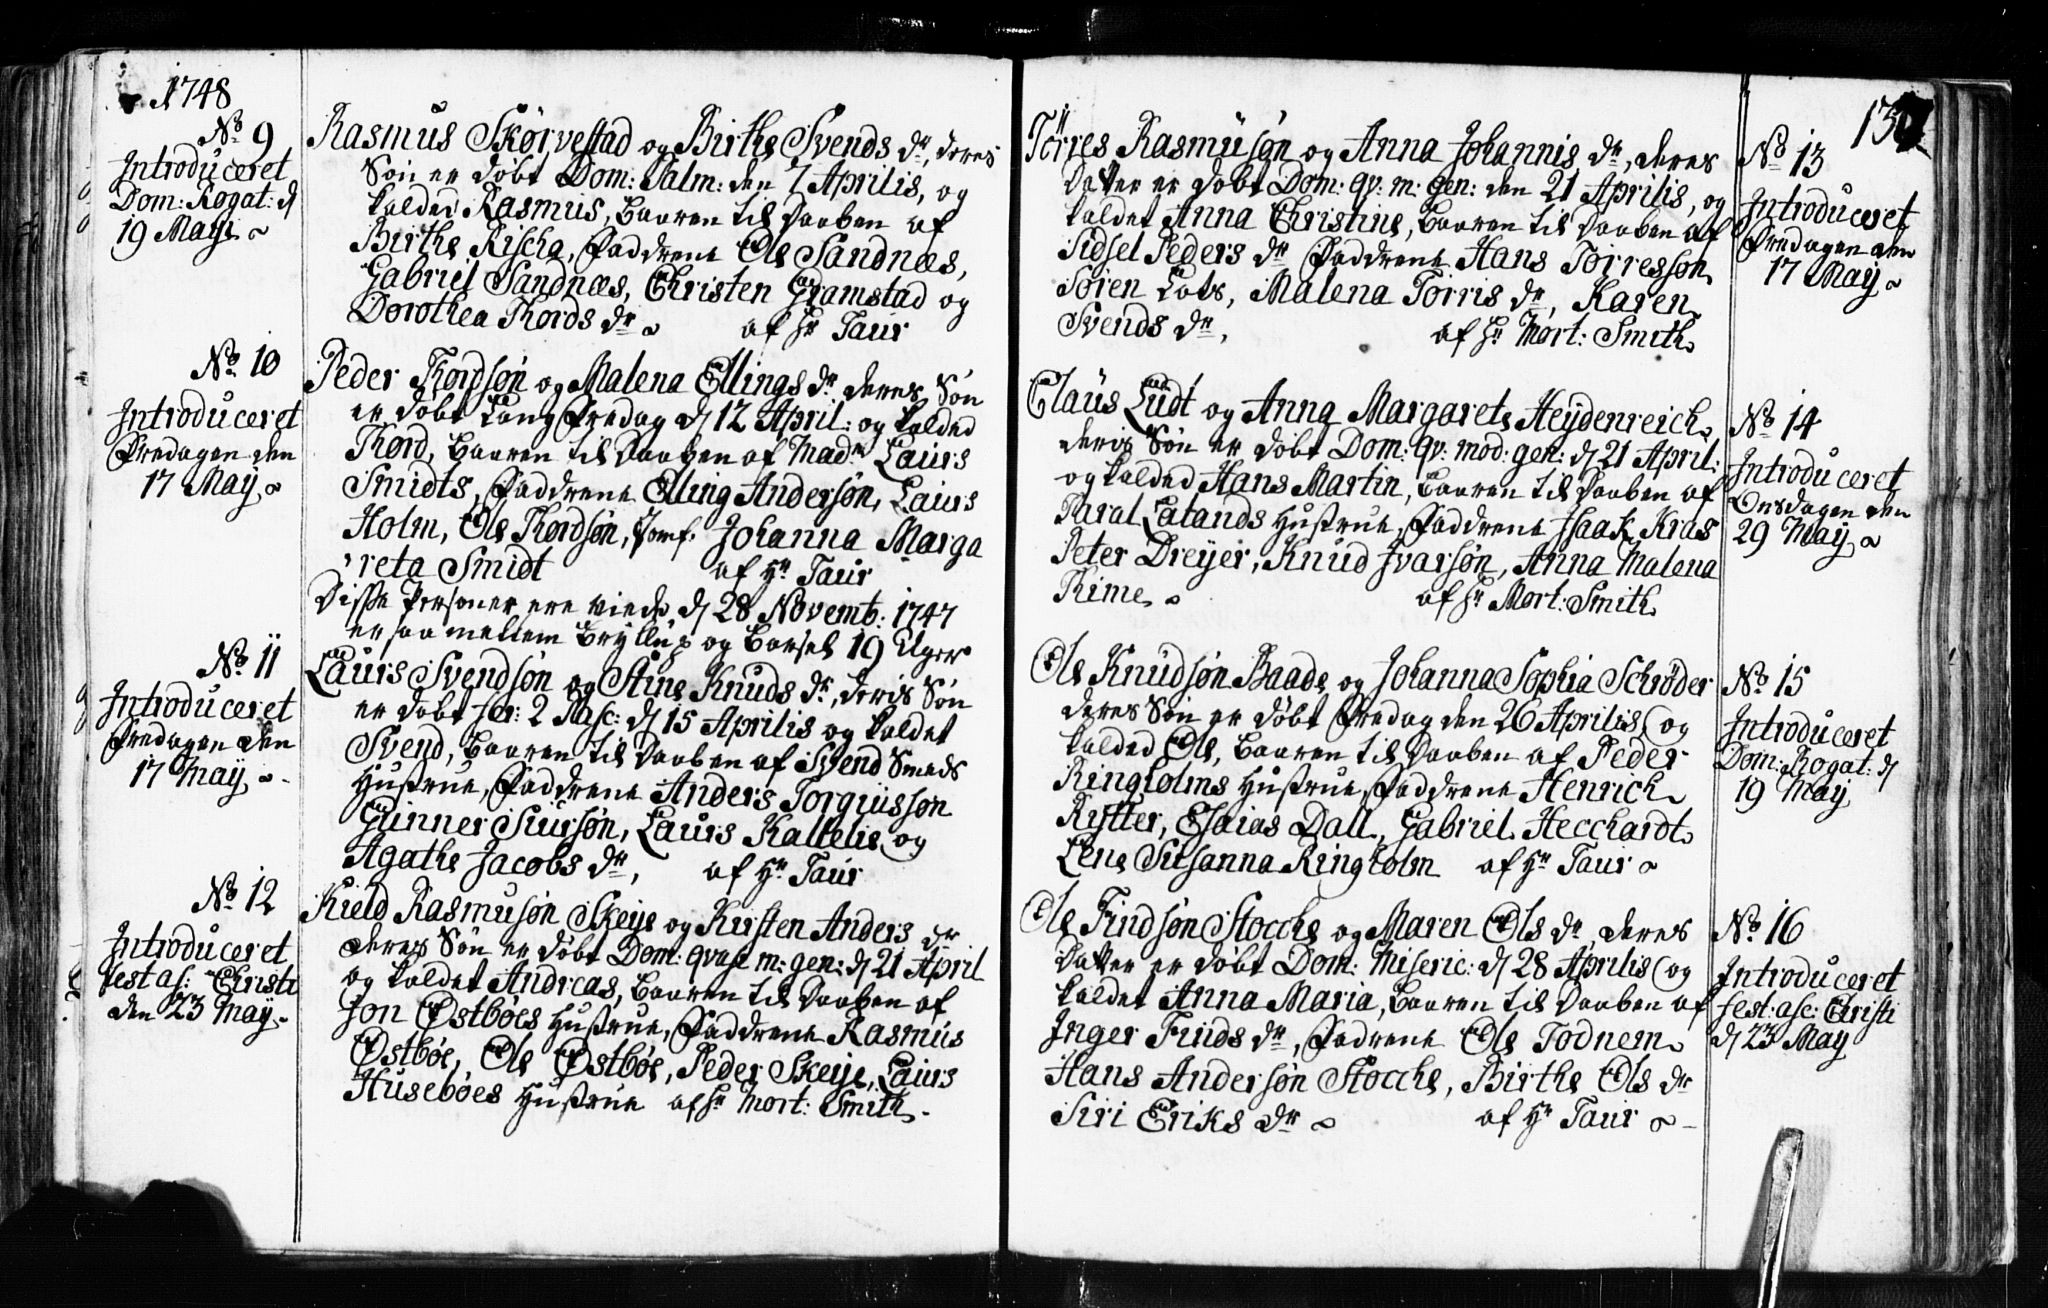 1748
No 9
Introduceret
Dom: Rogat: d
19 Maji
Rasmus Skörvestad og Birthe Svends dr, deres
Søn er døbt Dom: Palm: den 7 Aprilis, og
kalded Rasmus, baaren til Daaben af
Birthe Rischa, Faddrene Ole Sandnæs,
Gabriel Sandnæs, Christen Gramstad og
Dorothea Thords dr af Hr Taur
No 10
Introduceret
Fredagen den
17 Maÿ
Peder Thordsøn og Malena Ellings dr deres Søn
er døbt Lang Fredag d 12 April: og kalded
Thord, baaren til Daaben af Madme Laurs
Smidts, Faddrene Elling Andersøn, Laurs
Holm, Ole Thordsøn, Jomf. Johanna Marga
reta Smidt af Hr Taur
Disse Personer ere viede d 28 Novemb: 1747
er saa mellem Bryllup og Barsel 19 Uger
No 11
Introduceret
Fredagen den
17 Maÿ
Laurs Svendsøn og Stine Knuds dr, deris Søn
er døbt fer: 2 Pasc: d 15 Aprilis og kaldet
Svend, baaren til Daaben af Svend Smeds
Hustrue, Faddrene Anders Torguisson
Gunner Siursøn, Laurs Kaltelie og
Agathe Jacobs dr, af Hr Taur
No 12
Introduceret
fest as: Christi
den 23 Maÿ
Kield Rasmusøn Skeije og Kirsten Anders dr
deres Søn er døbt Dom: qvasi m: gen: d 21 April
og kaldet Andreas, baaren til Daaben af
Jon Østbøes Hustrue, Faddrene Rasmus
Østbøe, Ole Østbøe, Peder Skeije, Laurs
Husebøes Hustrue af Hr Mort: Smith
Törres Rasmusøn og Anna Johannis dr, deres
Datter er døbt Dom: qv: m: gen: den 21 Aprilis, og
kaldet Anna Christine, baaren til Daaben af
Sidsel Peders dr Faddrene Hans Torresson
Søren Lots, Malena Torris dr, Karen
Svends dr, af Hr Mort: Smith
No 13
Introduceret
Fredagen den
17 Maÿ
Claus Ludt og Anna Margareta Heydenreich
deris Søn er døbt Dom: qv: mod: gen: d 21 April:
og kalded Hans Martin, baaren til Daaben af
Paral Lalands Hustrue, Faddrene Isaak Kras
Peter Dreÿer, Knud Ivarsøn, Anna Malena
Rime af Hr Mort: Smith
No 14
Introduceret
Onsdagen den
29 Maÿ
Ole Knudsøn Baade og Johanna Sophia Schrøder
deres Søn er døbt Fredag den 26 Aprilis, og
kalded Ole, baaren til Daaben af Peder
Ringholms Hustrue, Faddrene Henrich
Rytter, Esaias Dall, Gabriel Hecchardt
Lene Susanna Ringholm af Hr Taur
No 15
Introduceret
Dom: Rogat: d
19 Maÿ
Ole Findsøn Stocche og Maren Ols dr deres
Datter er døbt Dom: Miseric: d 28 Aprilis og
kaldet Anna Maria, baaren til Daaben af
Inger Finds dr, Fadrene Ole Todnem
Hans Andersøn Stocche, Birthe Ols dr
Siri Eriks dr af Hr Taur
No 16
Introduceret
fest: asc: Christi
d 23 Maÿ